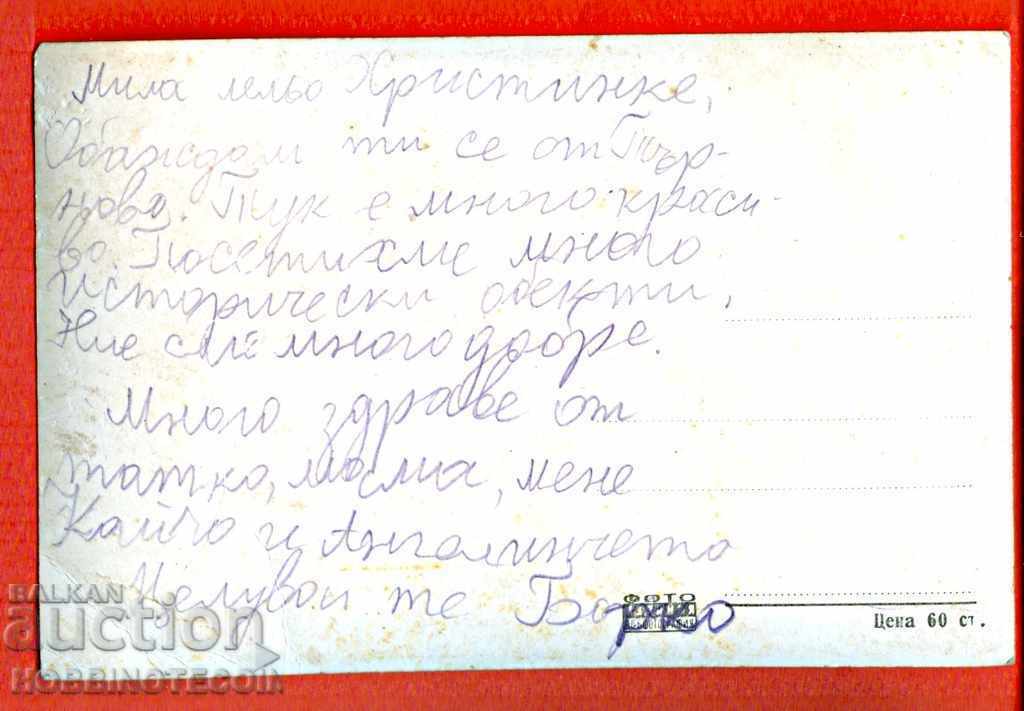 Мила лельо Христинке,
Обаждам ти се от Тър-
ново. Тук е много краси-
во. Посетихме много
исторически обекти.
Ние сме много добре.
Много здраве от
татко, мама, мене
Кайчо и Ангелинчето
Целувам те Борчо
ФОТО
Цена 60 ст.
BALKAN
auction
HOBBINOTECOIN